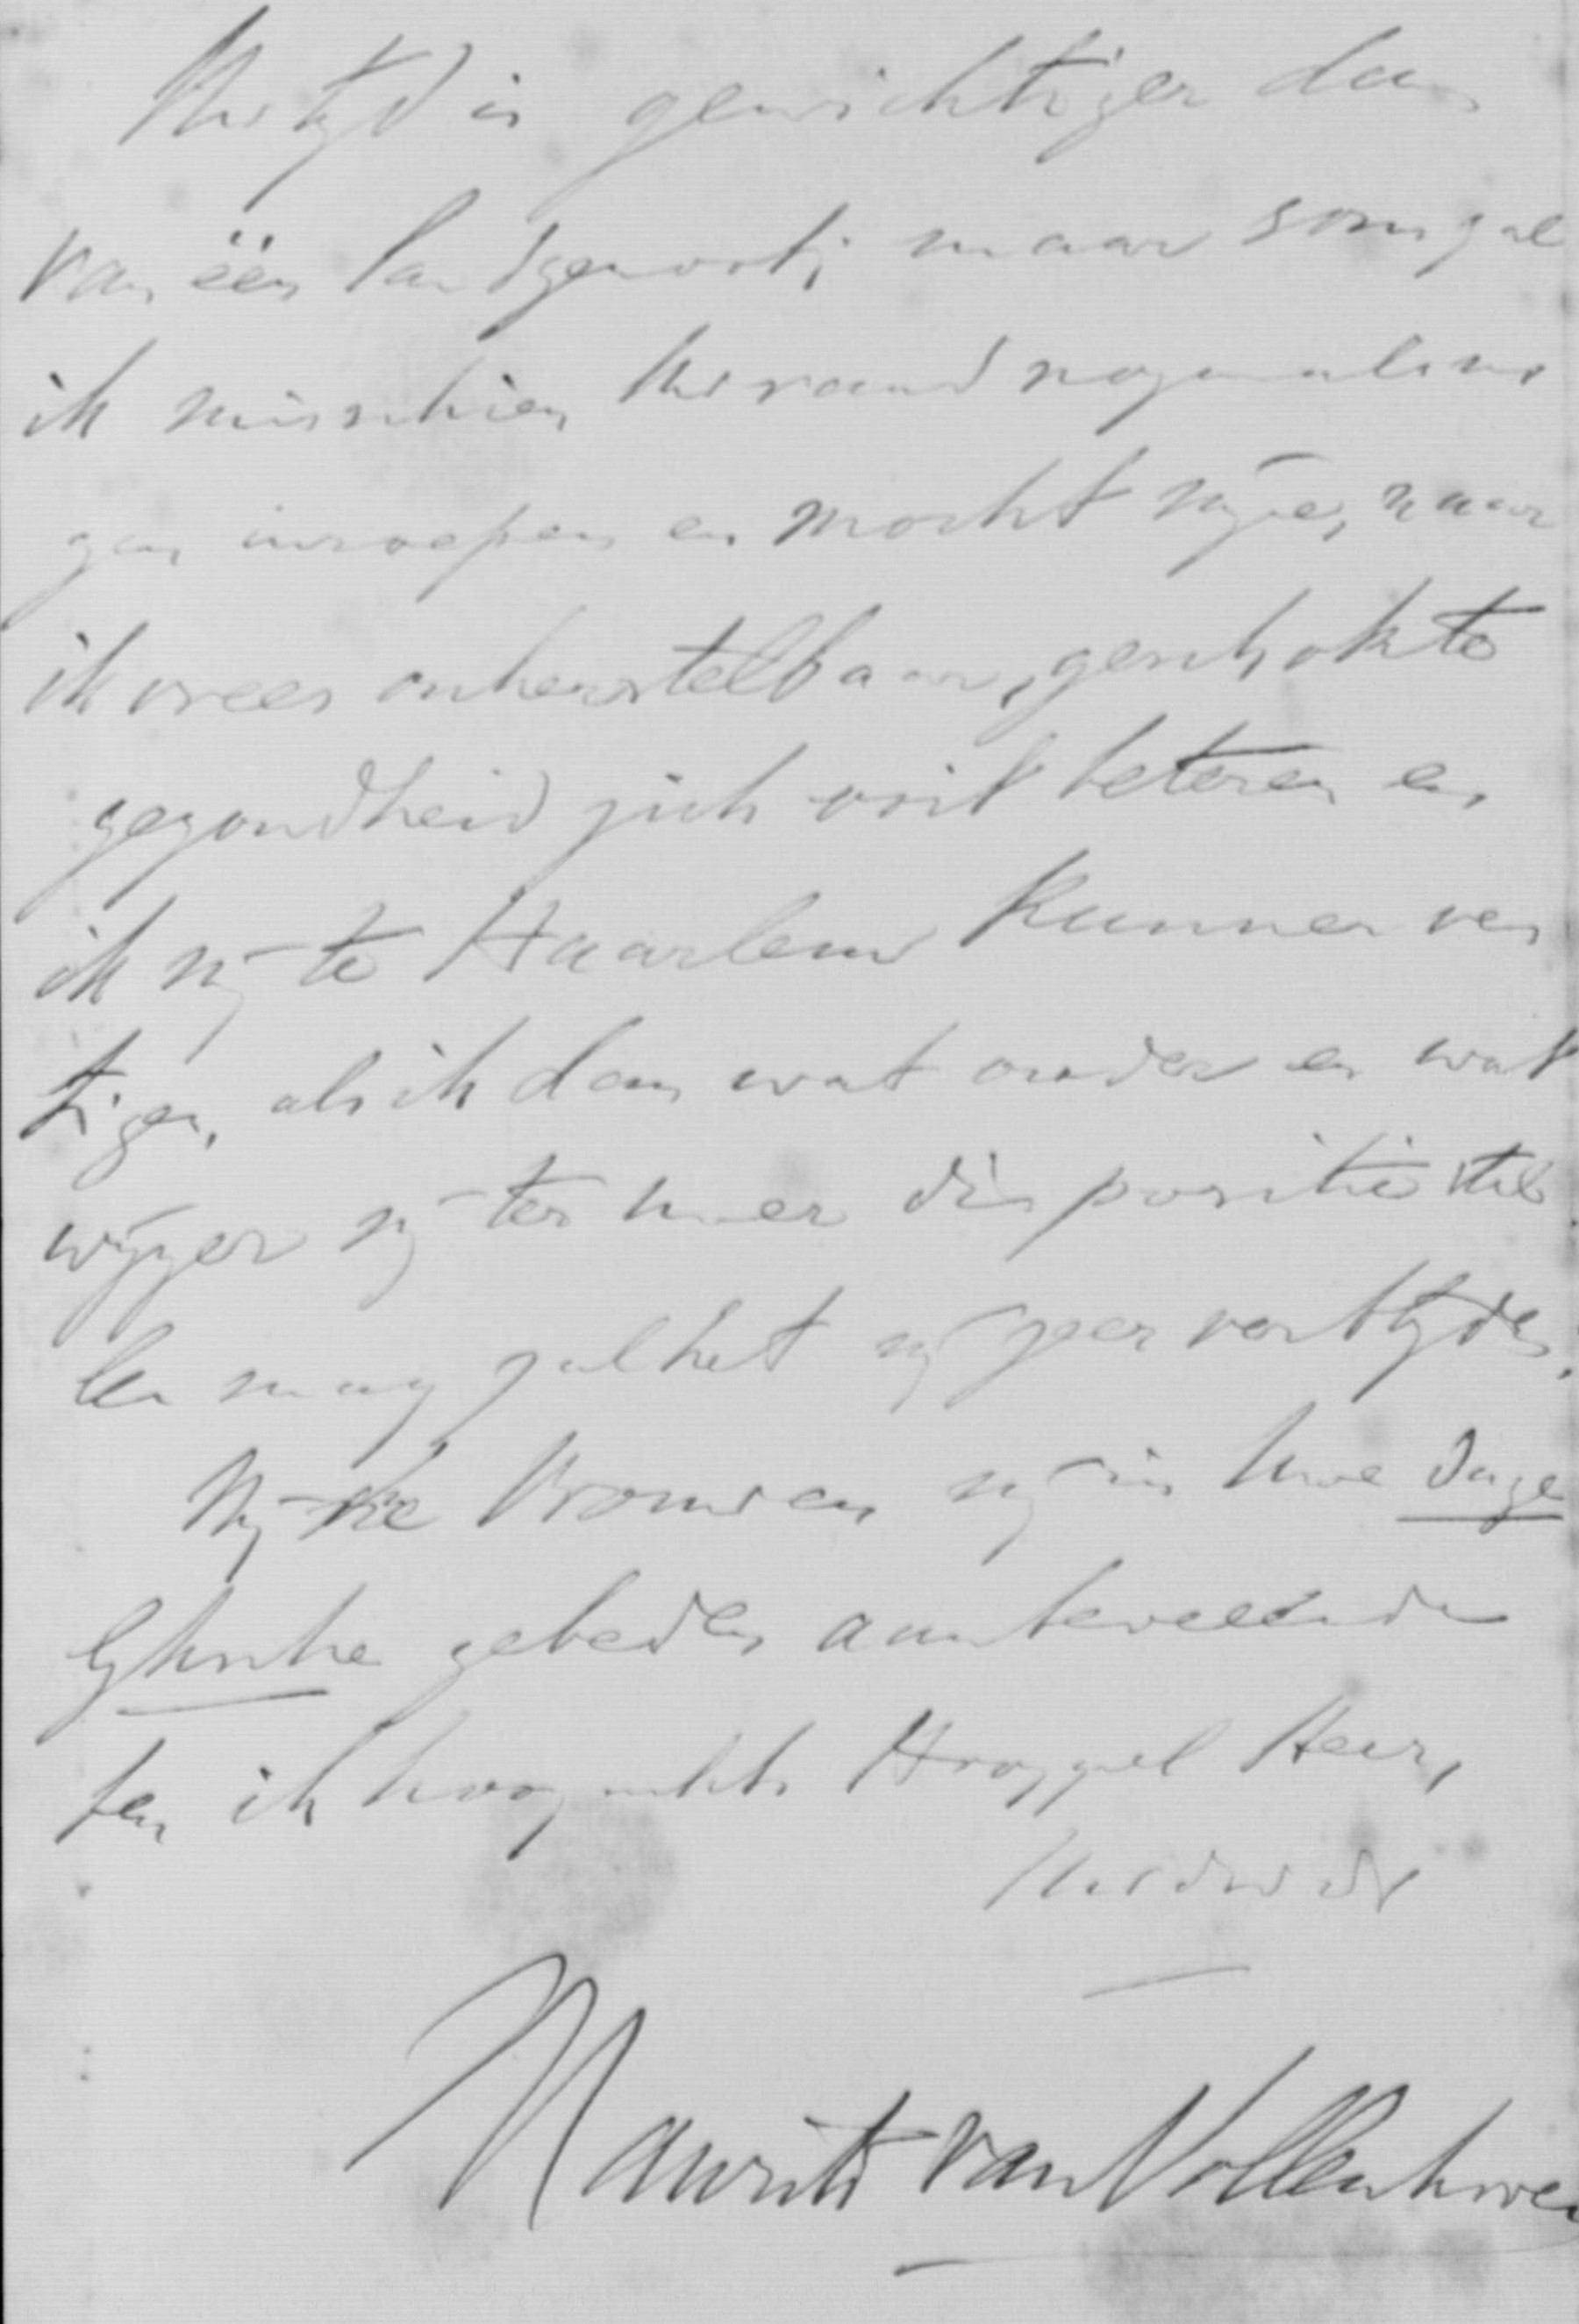 Uw tijd is gewichtiger dan
van één landgenoot; maar soms zal
ik misschien Uw raad nogmaals mo
gen inroepen en mocht mijne, naar
ik vrees onherstelbaar, geschokte
gezondheid zich ooit beteren en
ik mij te Haarlem kunnen ves
tigen, als ik dan wat ouder en wat
wijzer mij ter Uwer dispositie stel
len mag zal het mij zeer verblijden.
Mij en Vrouw en mij in Uwe dage
lijksche gebeden aanbevelende
ben ik hoogacht. Hooggel Heer,
Uw dw dr
Maurits van Vollenhoven